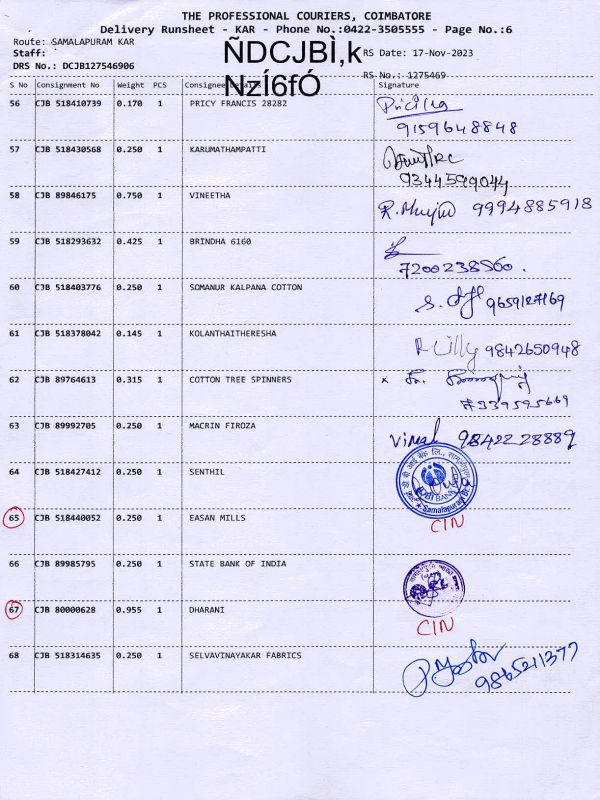 THE PROFESSIONAL COURIERS, COIMBATORE
Delivery Runsheet - KAR - Phone No.:0422-3505555 - Page No.:6
Route: SAMALAPURAM KAR
Staff:
ÑDCJBÌ,k
NzÍ6fÓ
RS Date: 17-Nov-2023
DRS No.: DCJB127546906
RS No.: 1275469
S No Consignment No Weight PCS Consignee Details Signature
56 CJB 518410739 0.170 1 PRICY FRANCIS 28282
9159648848
57 CJB 518430568 0.250 1 KARUMATHAMPATTI
9344599044
58 CJB 89846175 0.750 1 VINEETHA 9994885918
59 CJB 518293632 0.425 1 BRINDHA 6160
7200238560.
60 CJB 518403776 0.250 1 SOMANUR KALPANA COTTON
9659127169
61 CJB 518378042 0.145 1 KOLANTHAITHERESHA
R Lilly 9842650948
62 CJB 89764613 0.315 1 COTTON TREE SPINNERS
7339595669
63 CJB 89992705 0.250 1 MACRIN FIROZA
Vimal 9842228889
64 CJB 518427412 0.250 1 SENTHIL
IDBI BANK
Samalapuram Br.
65 CJB 518440052 0.250 1 EASAN MILLS
CIN
66 CJB 89985795 0.250 1 STATE BANK OF INDIA
67 CJB 80000628 0.955 1 DHARANI
CIN
68 CJB 518314635 0.250 1 SELVAVINAYAKAR FABRICS
9865211377